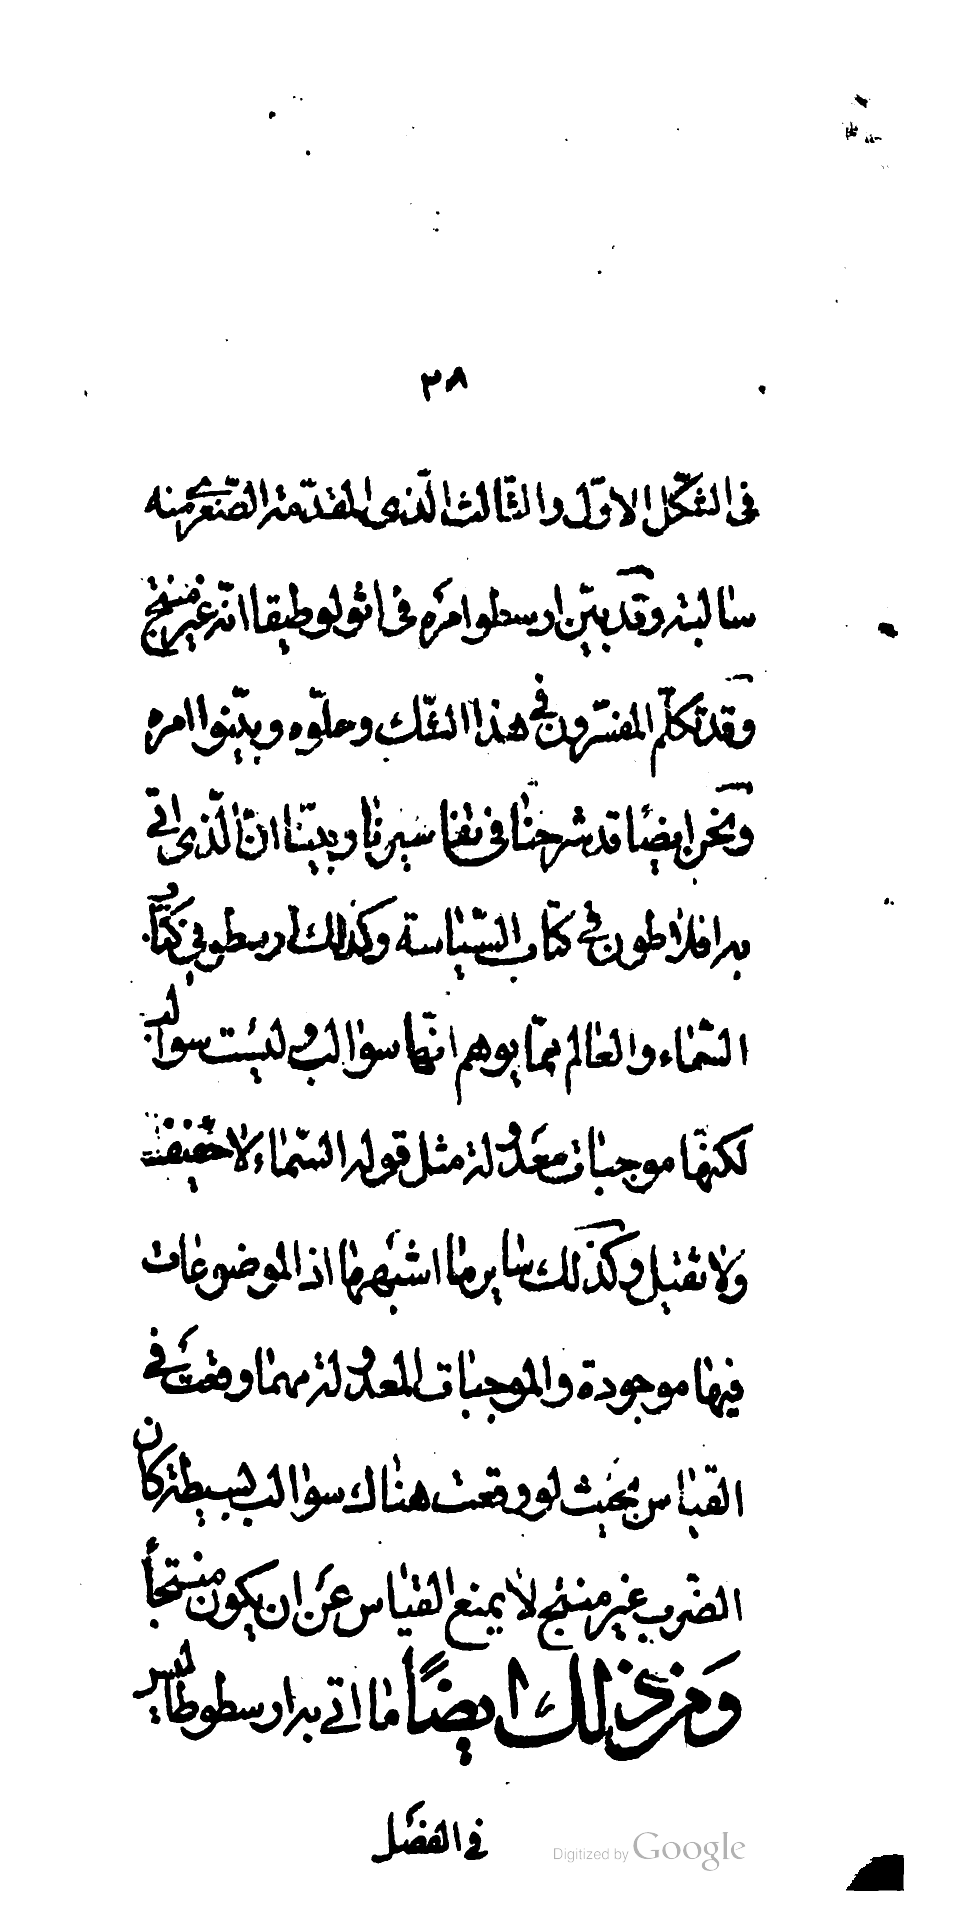 ٣٨
في الشكل الاوّل والثالث الّذى المقدّمة الصّغرى منه
سالبة وقد بيّن ارسطو امره فى انولوطيقا انّه غير منتج
وقد تكلّم المفسّرون في هذا الشّك وحلّوه وبيّنوا امره
ونحن ايضًا قد شرحنا فى تفاسيرنا وبيّنا انّ الّذى اتى
به افلاطون في كتاب السّياسة وكذلك ارسطو في كتاب
السّماء والعالم ممّا يوهم انّها سوالب وليست سوالب
لكنّها موجبات معدولة مثل قوله السّماء لا خفيفة
ولا ثقيل وكذلك ساير ما اشبهها اذ الموضوعات
فيها موجودة والموجبات المعدولة مهما وقعت في
القياس بحيث لو وقعت هناك سوالب بسيطة كان
الضّرب غير منتج لا يمنع القياس عن ان يكون منتجاً
ومن ذلك ايضًا ما اتى به ارسطوطاليس
في الفصل
Digitized by Google